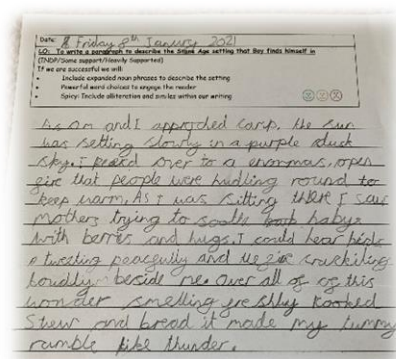 Date: Friday 8th January 2021
LO: To write a paragraph to describe the Stone Age setting that Boy finds himself in
(INDP/Some support/Heavily Supported)
If we are successful we will:
• Include expanded noun phrases to describe the setting
• Powerful word choices to engage the reader
• Spicy: Include alliteration and similes within our writing
As Om and I approched camp. the sun
was setting slowly in a purple stuck
sky. I peard over to a enormas, open
gire that people were hudling round to
keep warm. As I was sitting there I saw
mothers trying to baby
with berries and hugs. I could hear
tweeting peacefully and crackiling
loudly beside me. Over all of this
smelling koored
stew and bread it made my tummy
rumble like thunder.